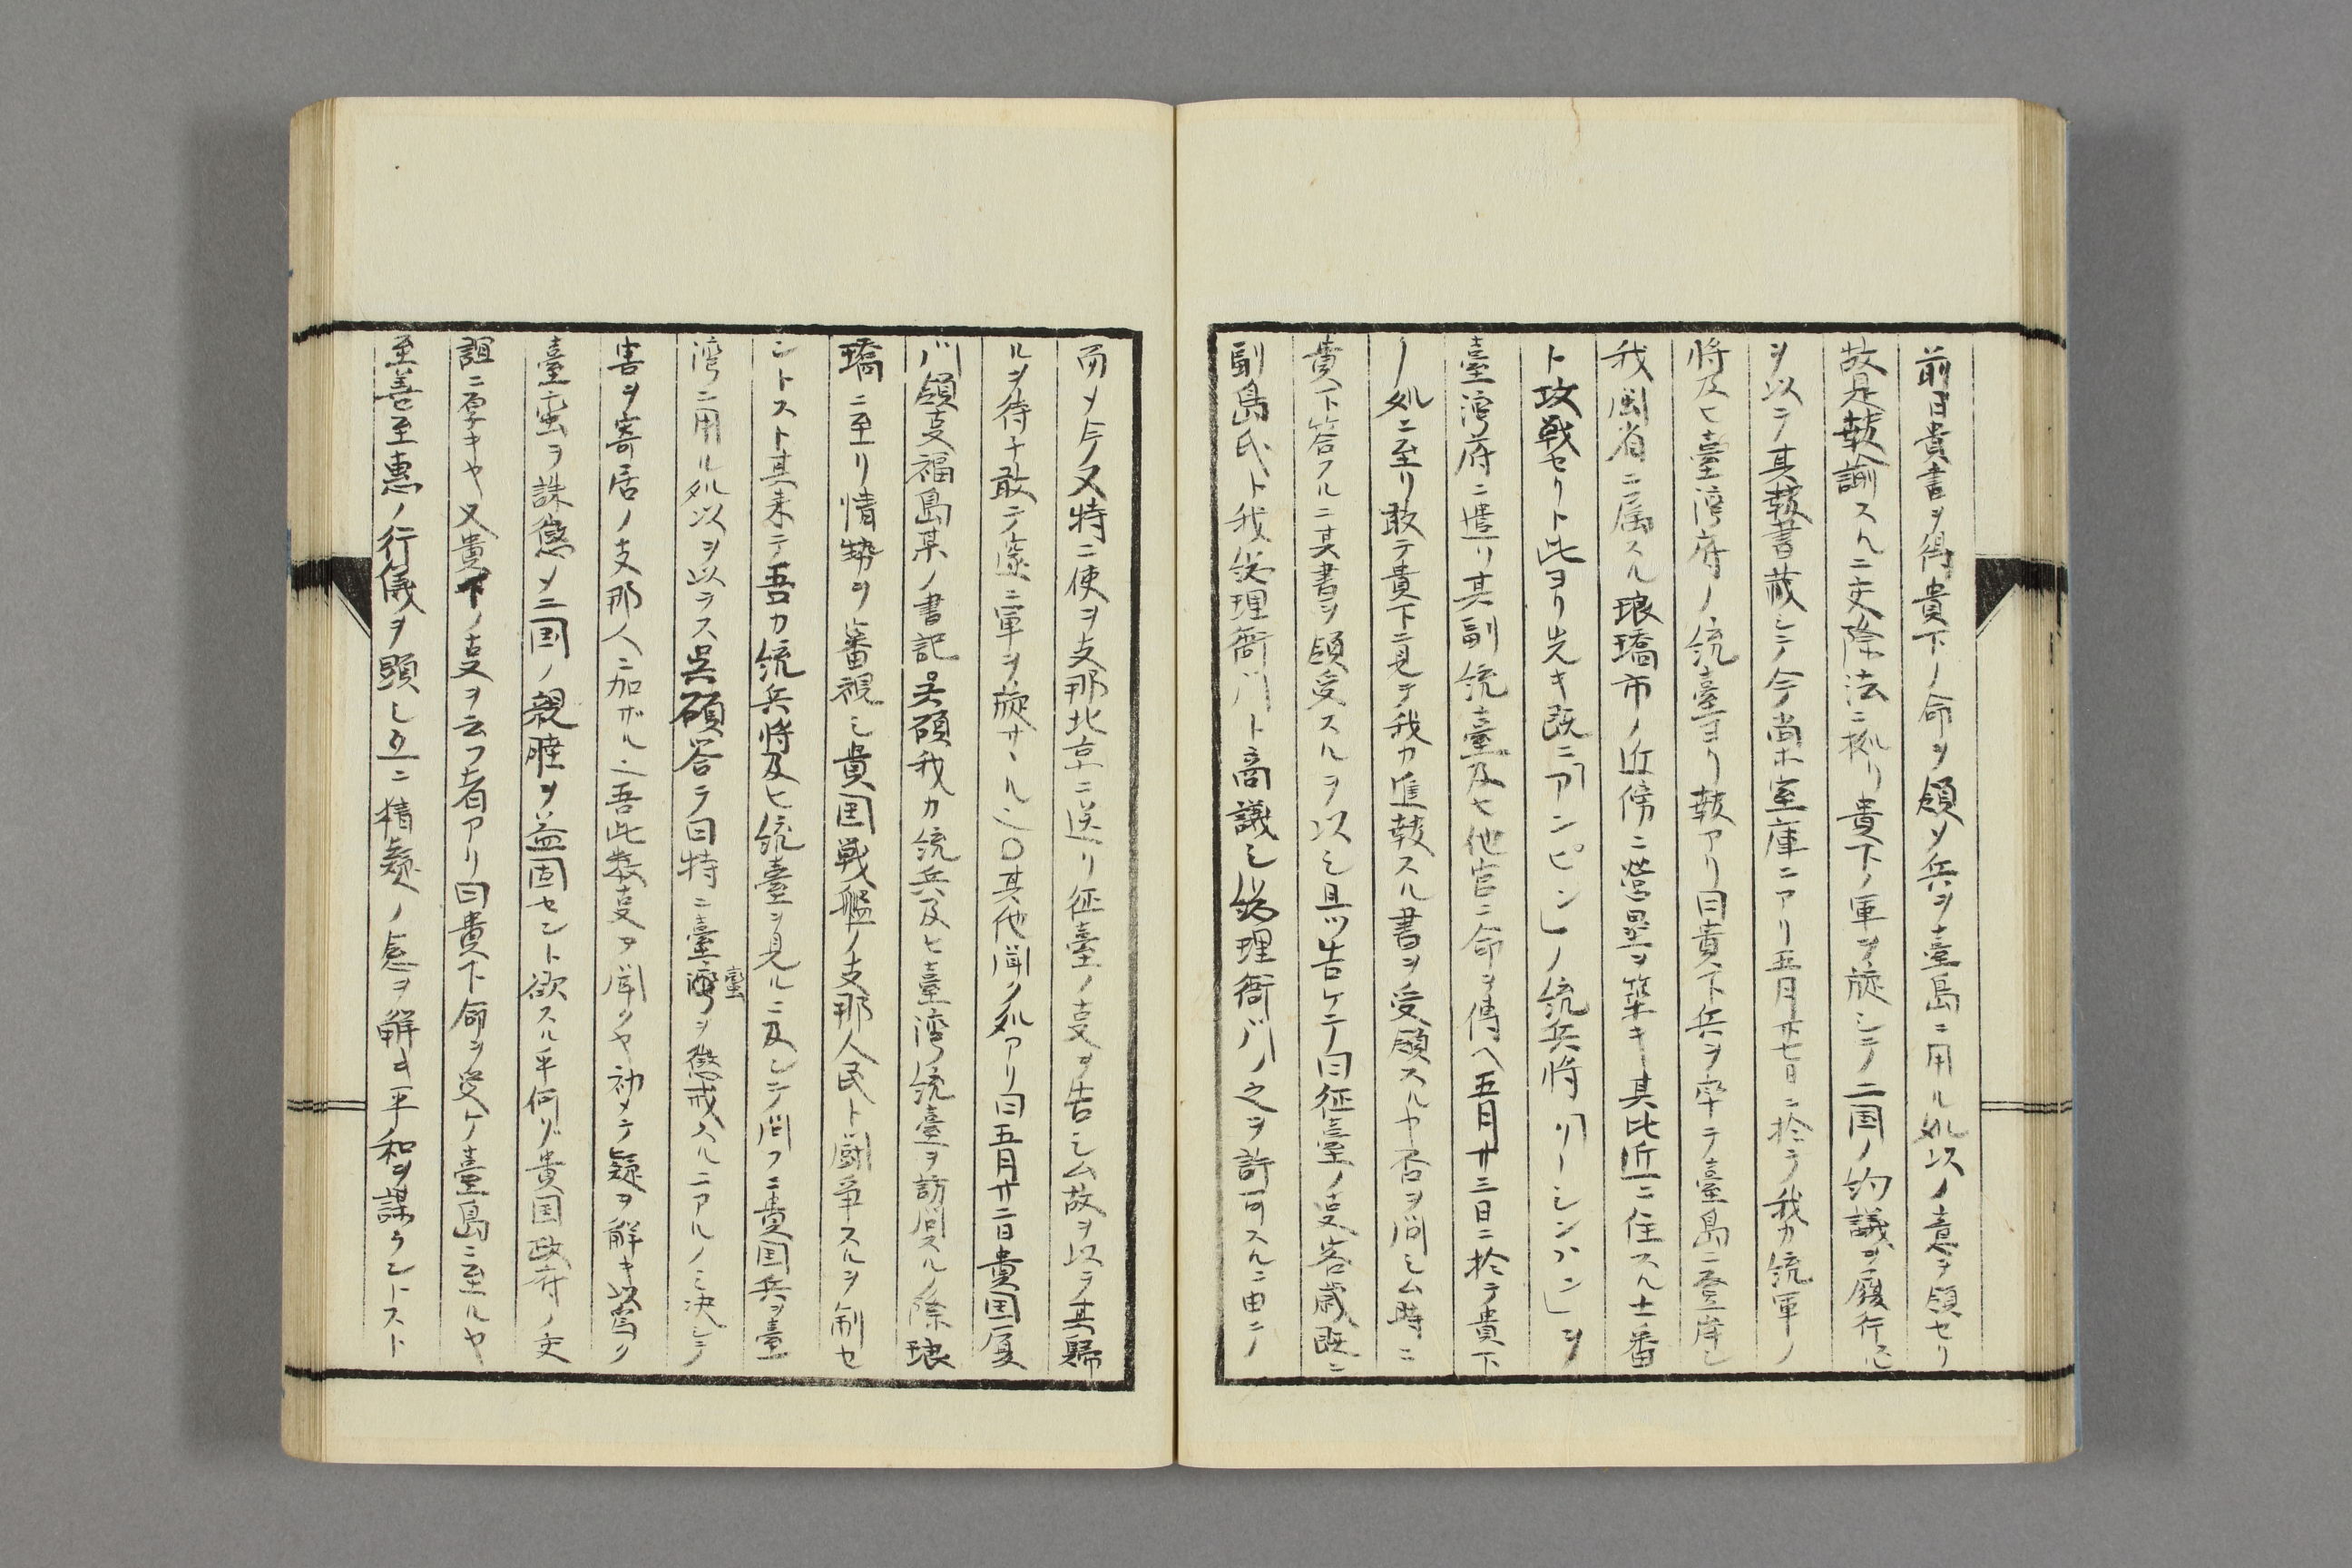 前日貴書ヲ得貴下ノ命ヲ領メ兵ヲ臺島ニ用ル処以ノ意ヲ領セリ
故是報諭スルニ交際法ニ拠リ貴下ノ軍ヲ旋シテ二国ノ約議ヲ履行
ヲ以テ其報書蔵シテ今尚ホ室庫ニアリ五月廿七日ニ於テ我カ統軍ノ
将及ヒ臺湾府ノ統臺ヨリ報アリ曰貴下兵ヲ率テ臺島ニ登岸シ
我閩省ニ属スル琅𤩝市ノ近傍ニ營塁ヲ築キ其比近ニ住スル土番
ト攻戦セリト此ヨリ先キ既ニ「アンピン」ノ統兵将「リーシンハン」ヲ
臺湾府ニ遣リ其副統臺及ヒ他官ニ命ヲ傳ヘ五月廿三日ニ於テ貴下
ノ処ニ至リ敢テ貴下ニ見ヲ我カ進報スル書ヲ受領スルヤ否ヲ問シム時ニ
貴下答フルニ其書ヲ領受スルヲ以シ且ツ告ケテ曰征臺ノ支客歳既ニ
副島氏ト我総理衙門ト商議シ総理衙門ノ之ヲ許可スルニ由ニ
而メ今又特ニ使ヲ支那北京ニ送リ征臺ノ支ヲ告シム故ヲ以テ其歸
ルヲ待チ敢テ遽ニ軍ヲ旋サヽル〆〇其他聞ノ処アリ曰五月廿二日貴国厦
門領支福島某ノ書記呉碩我カ統兵及ヒ臺湾統臺ヲ訪問スルノ際琅
𤩝ニ至リ情勢ヲ審視シ貴国戦艦ノ支那人民ト闘爭スルヲ制セ
ントスト其来テ吾カ統兵将及ヒ統臺ヲ見ルニ及シテ問フニ貴国兵ヲ臺
湾ニ用ル処以ヲ以テス呉碩答テ曰特ニ臺湾蛮ヲ懲戒スルニアルノミ決シテ
害ヲ寄居ノ支那人ニ加ザル〆吾此数支ヲ聞クヤ初メテ疑ヲ解キ以為ク
臺蛮ヲ誅懲メ二国ノ親睦ヲ益固セント欲スル乎何ゾ貴国政府ノ交
誼ニ厚キヤ又貴下ノ支ヲ云フ者アリ曰貴下命ヲ受ケ臺島ニ至ルヤ
至善至惠ノ行儀ヲ顕シ互ニ積疑ノ念ヲ解キ平和ヲ謀ラントスト